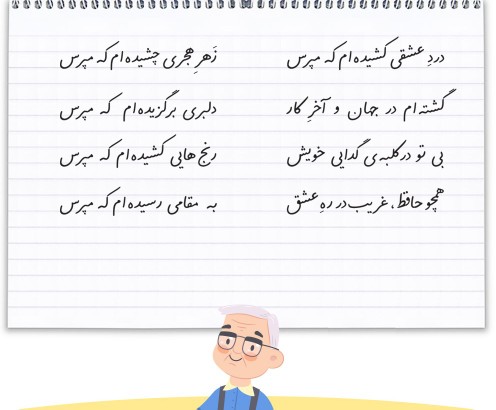 دردِ عشقی کشیده‌ام که مپرس زَهرِ هجری چشیده‌ام که مپرس
گشته‌ام در جهان و آخرِ کار دلبری برگزیده‌ام که مپرس
بی تو در کلبه‌ی گدایی خویش رنج‌هایی کشیده‌ام که مپرس
همچو حافظ، غریب در رهِ عشق به مقامی رسیده‌ام که مپرس